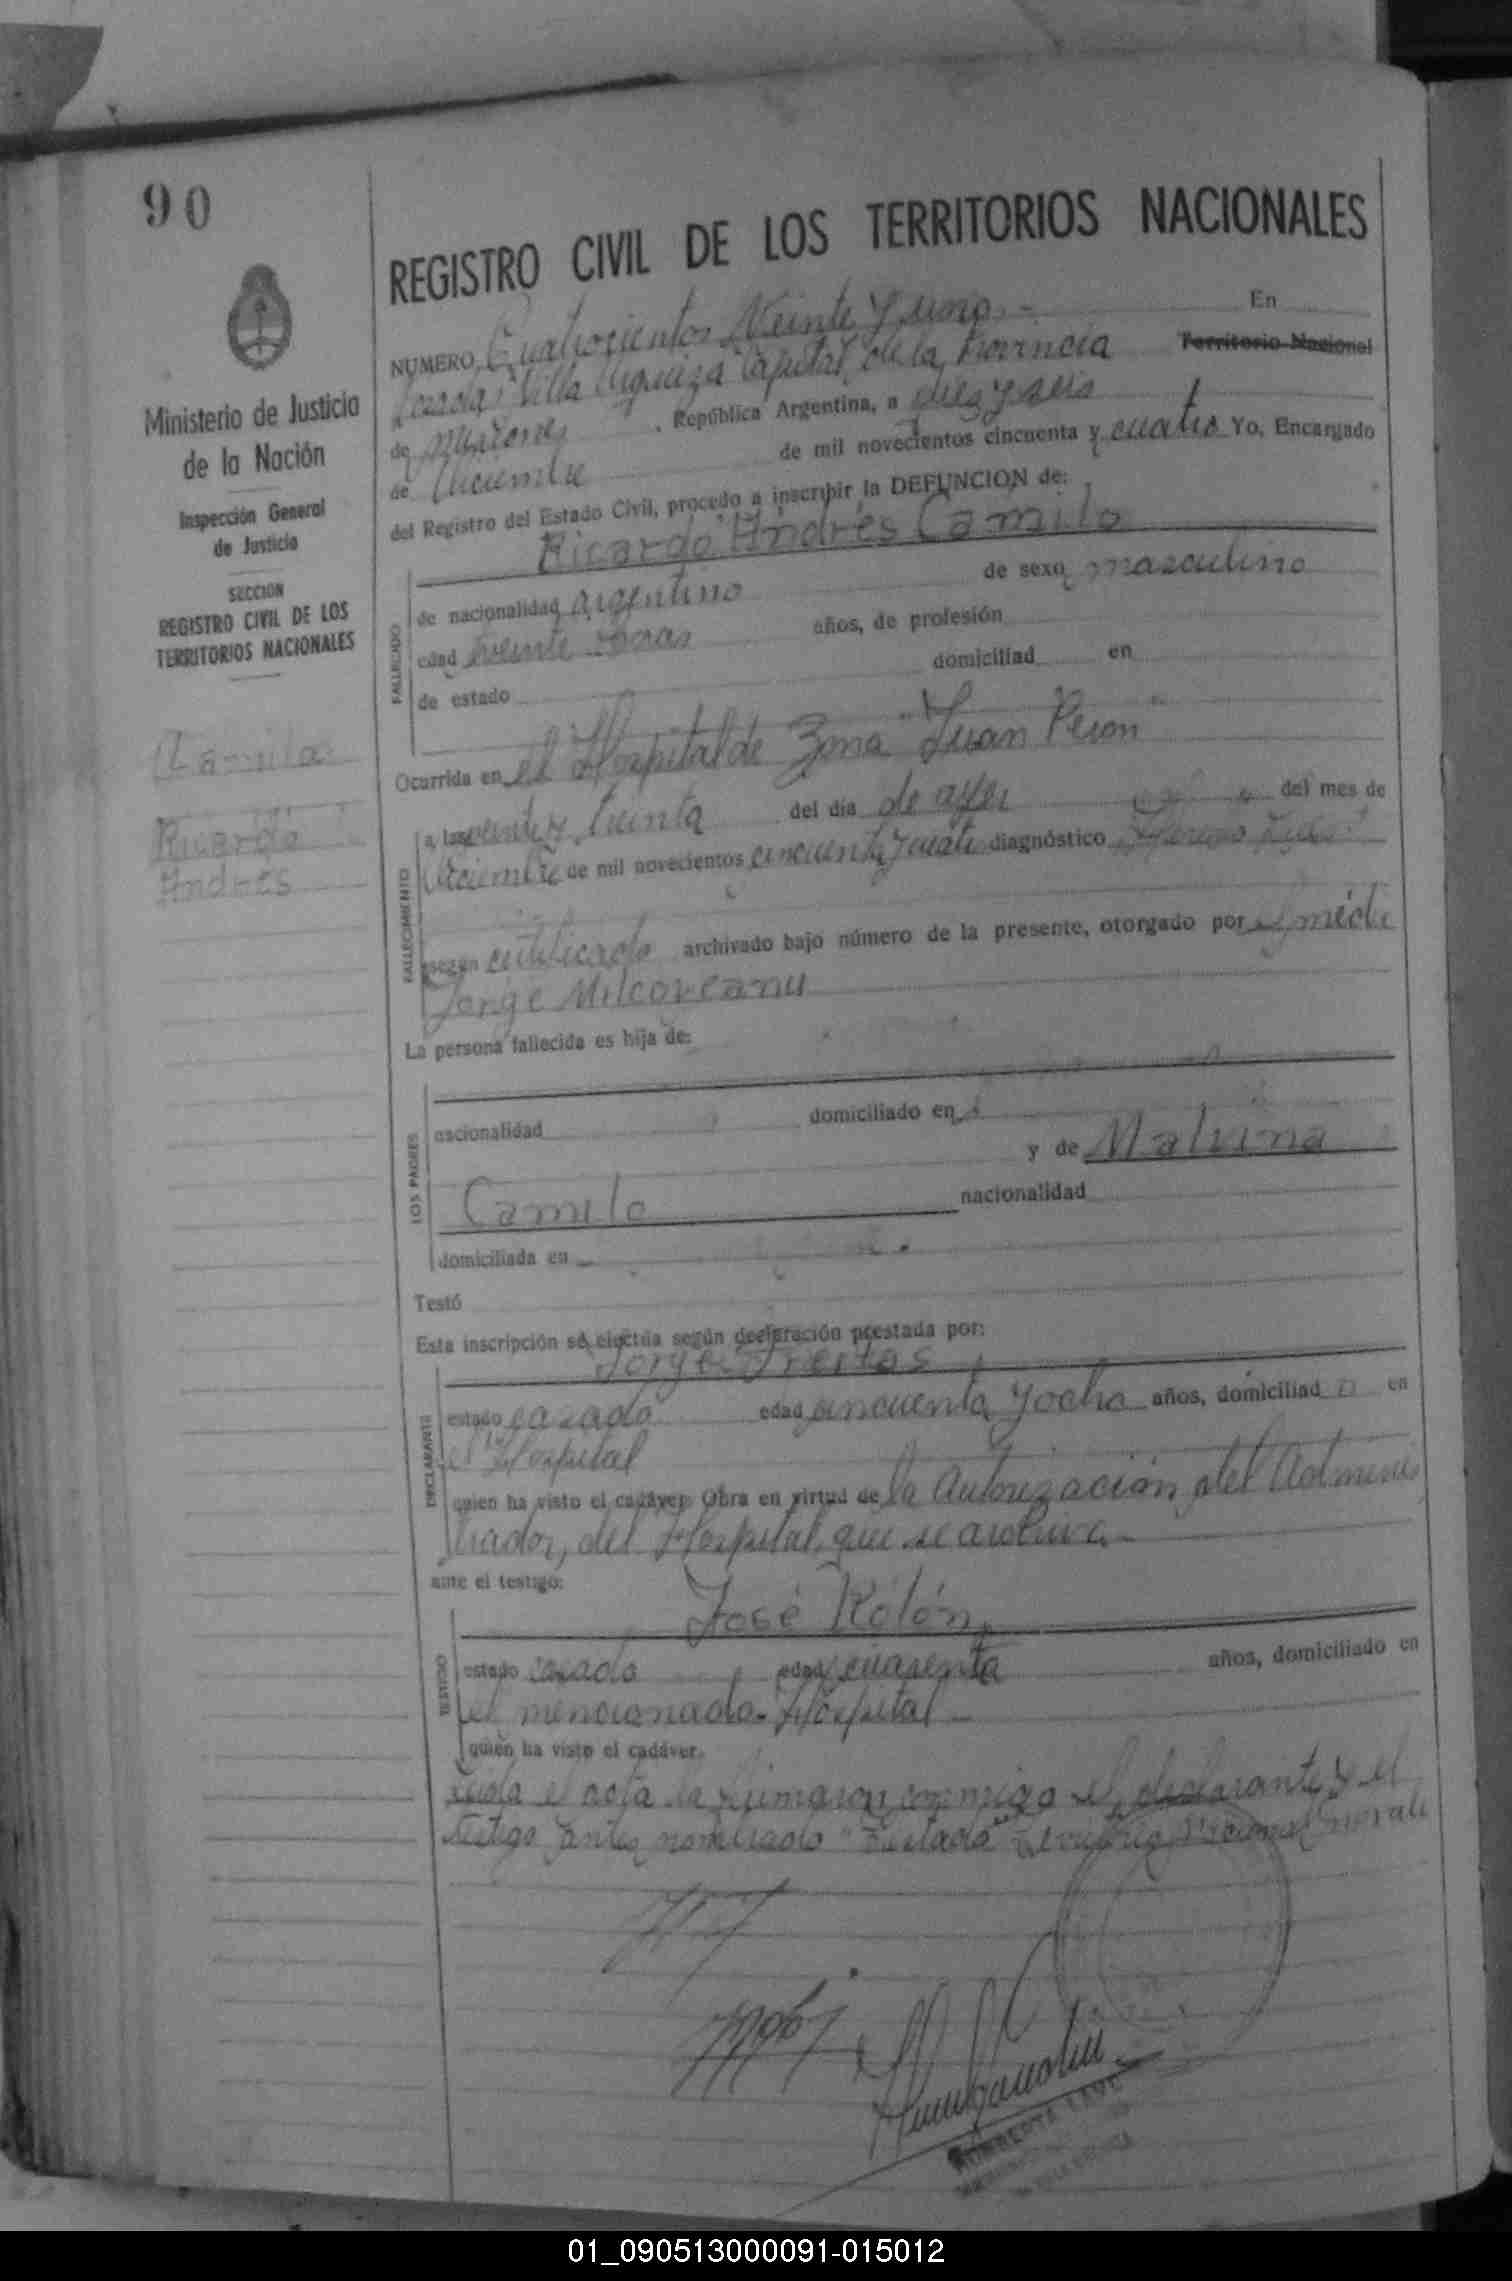 90
REGISTRO CIVIL DE LOS TERRITORIOS NACIONALES
Ministerio de Justicia
de la Nación
Inspección General
de Justicia
SECCION
REGISTRO CIVIL DE LOS
TERRITORIOS NACIONALES
Camilo
Ricardo
Andrés
NUMERO Cuatrocientos Veinte y uno.- En
Posadas Villa Capital de la Provincia Territorio Nacional
de Misiones, República Argentina, a diez y seis
de Diciembre de mil novecientos cincuenta y cuatro Yo, Encargado
del Registro del Estado Civil, procedo a inscribir la DEFUNCION de:
Ricardo Andrés Camilo
FALLECIDO
de nacionalidad argentino de sexo masculino
edad veinte horas años, de profesión
de estado domiciliad en
Ocurrida en el Hospital de Zona "Juan Peron"
FALLECIMIENTO
a las veinte y treinta del día de ayer del mes de
Diciembre de mil novecientos cincuenta y cuatro diagnóstico
según certificado archivado bajo número de la presente, otorgado por
Jorge Milcoveanu
La persona fallecida es hija de:
LOS PADRES
nacionalidad domiciliado en
y de Malvina
Camilo nacionalidad
domiciliada en
Testó
Esta inscripción se efectúa según declaración prestada por:
Jorge Freitas
DECLARANTE
estado casado edad cincuenta y ocho años, domiciliad o en
el Hospital
quien ha visto el cadáver. Obra en virtud de la Autorización del Adminis
trador, del Hospital que se archiva.-
ante el testigo:
José Kolón
TESTIGO
estado casado edad cuarenta años, domiciliado en
el mencionado Hospital
quien ha visto el cadáver.
Leida el acta la firmaron conmigo el declarante y el
testigo antes nombrado "Testado" Territorio Nacional
01_090513000091-015012